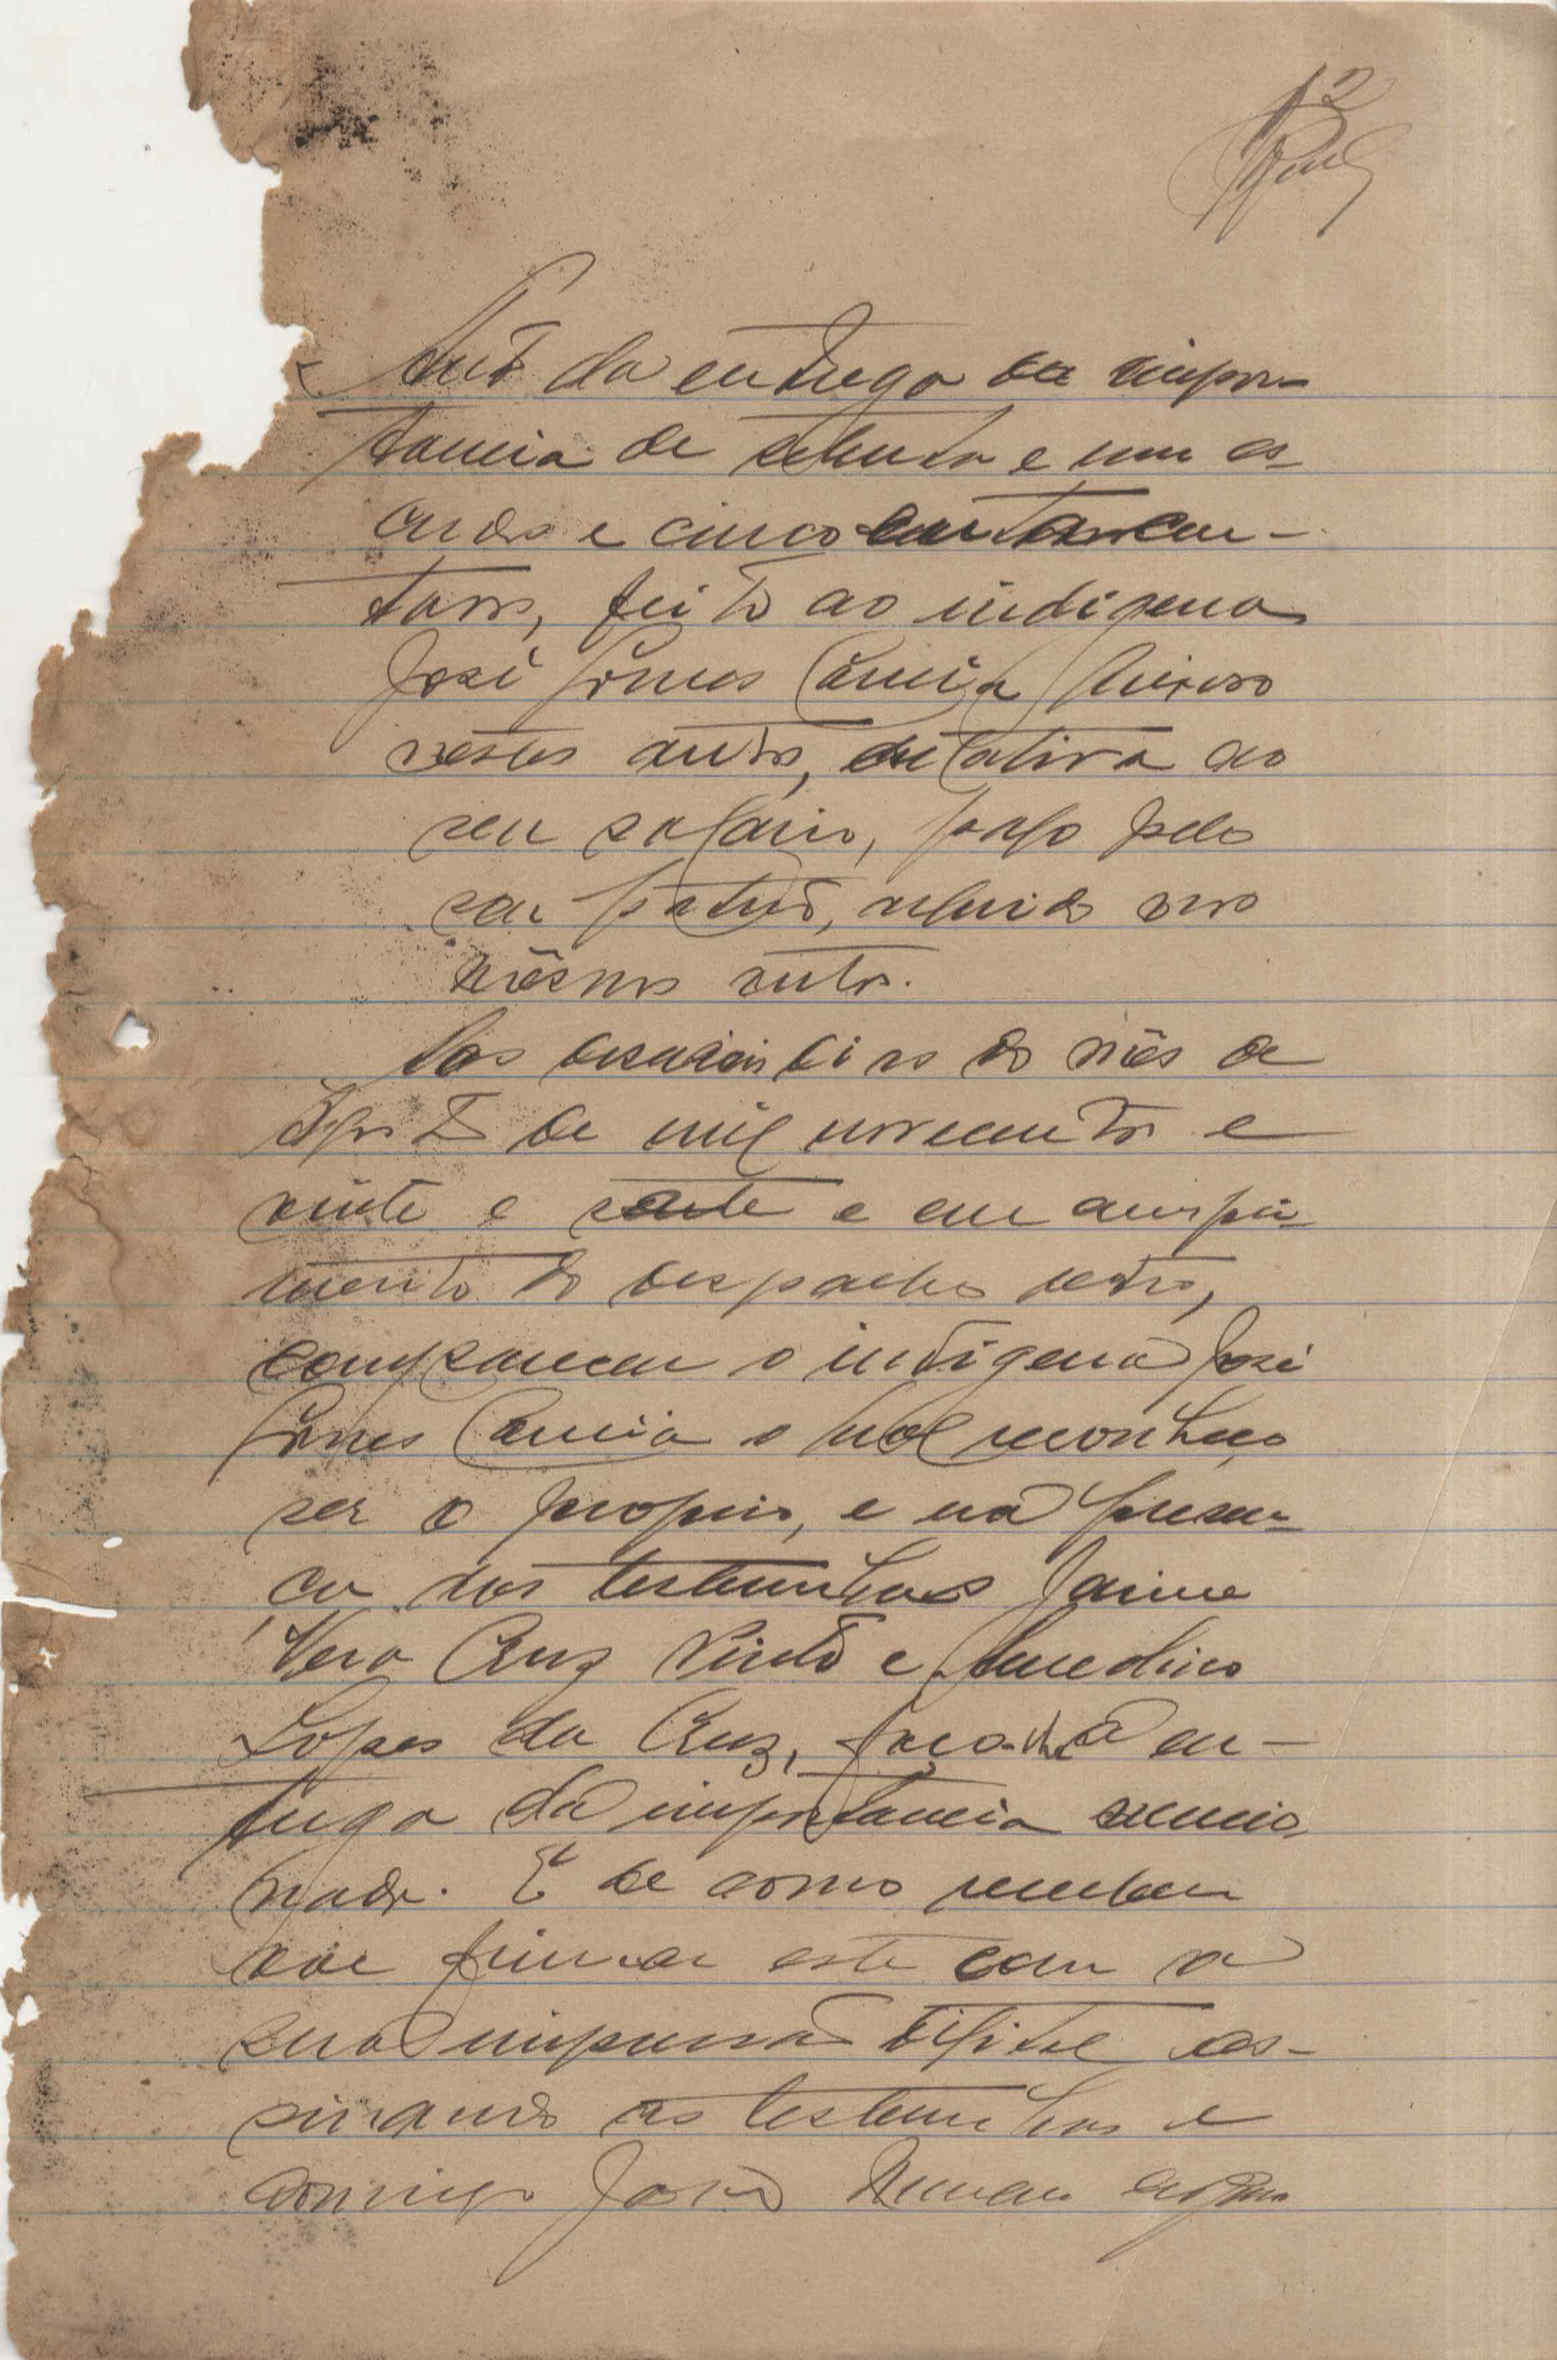 2
Auto da entrega da impor-
tancia de setenta e um es-
cudos e cinco centavcen-
tavos, feito ao indigena
José Gomes Correia
nestes autos, relativa ao
seu salario, pago pelo
seu patrão, referido nos
mêsmos autos.
Aos dezaseis dias do mês de
Agosto de mil novecentos e
vinte e sete e em cumpri-
mento do despacho retro,
compareceu o indigena José
Gomes Correia o qual reconheço
ser o proprio, e na presen-
ça das testemunhas Jaime
Vera Cruz Pinto e
Lopes da Cruz, faço-lhe a en-
trega da importancia mencio-
nada. E de como recebeu
vae firmar este com a
sua impressão digital as-
sinando as testemunhas e
comigo João